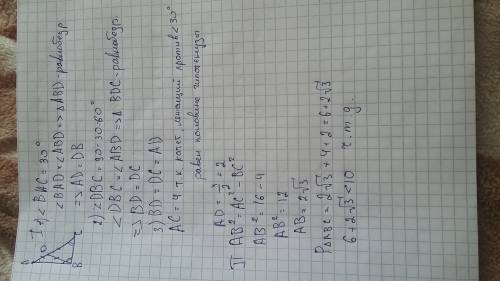 A
D
B
C
I 1) <BAC = 30°
<BAD = <ABD => △ABD - равнобедр
=> AD = DB
2) <DBC = 90-30=60°
<DBC = <ABD => △ BDC - равнобедр.
=> BD = DC
3) BD = DC = AD
AC = 4 т.к. катет, лежащий против <30°
равен половине гипотенузы
AD = 4/2 = 2
II AB² = AC² - BC²
AB² = 16 - 4
AB² = 12
AB = 2√3
P△ABC = 2√3 + 4 + 2 = 6 + 2√3
6 + 2√3 < 10 ч.т.д.